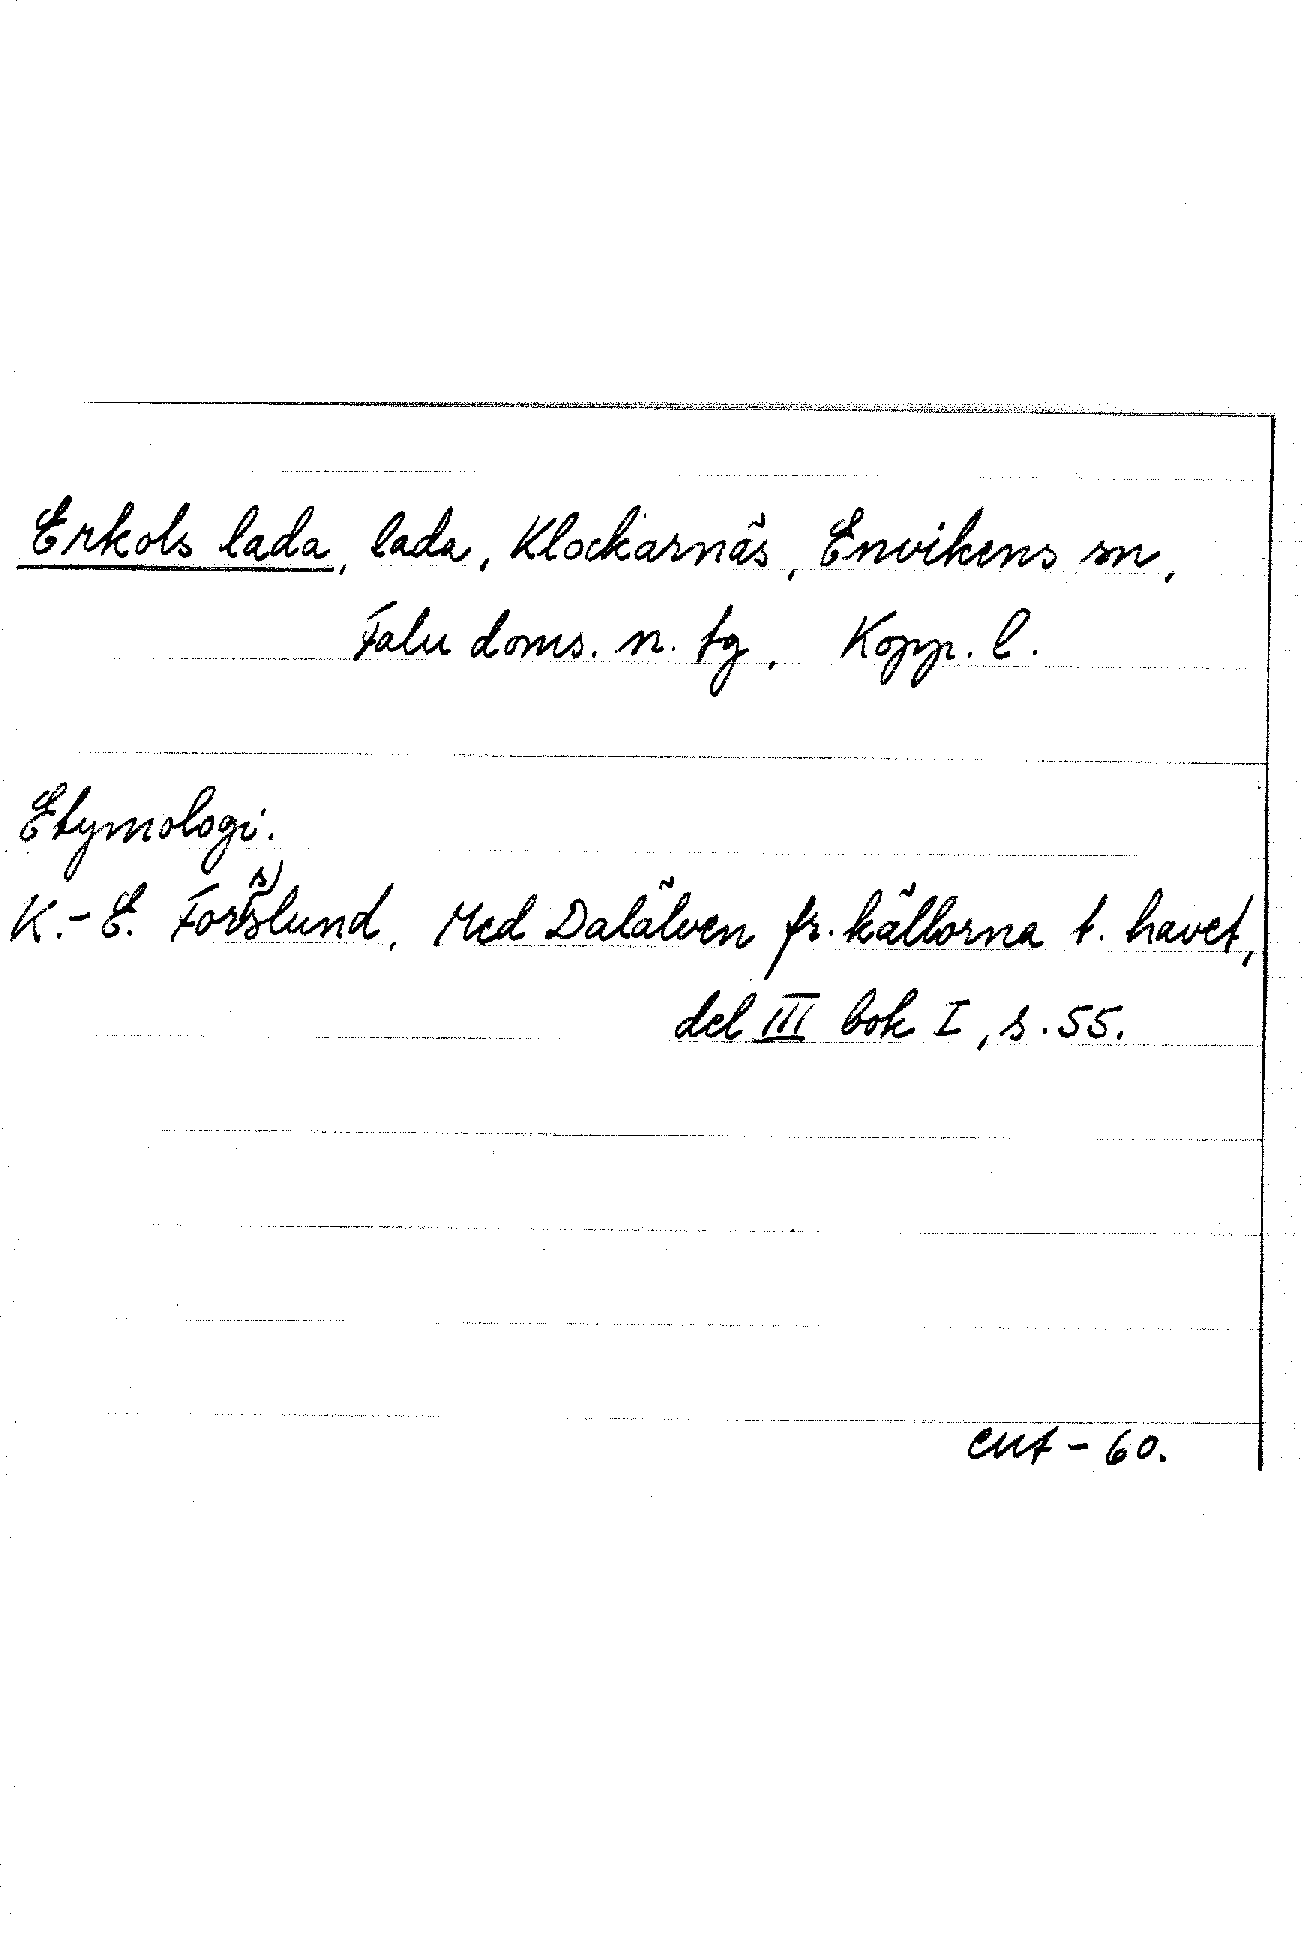 Erkols lada, lada, Klockarnäs, Envikens sn,
Falu doms. n. tg, Kopp. l.
Etymologi.
K.-E. Forsslund, Med Dalälven fr. källorna t. havet,
del III bok I, s. 55.
- 60.